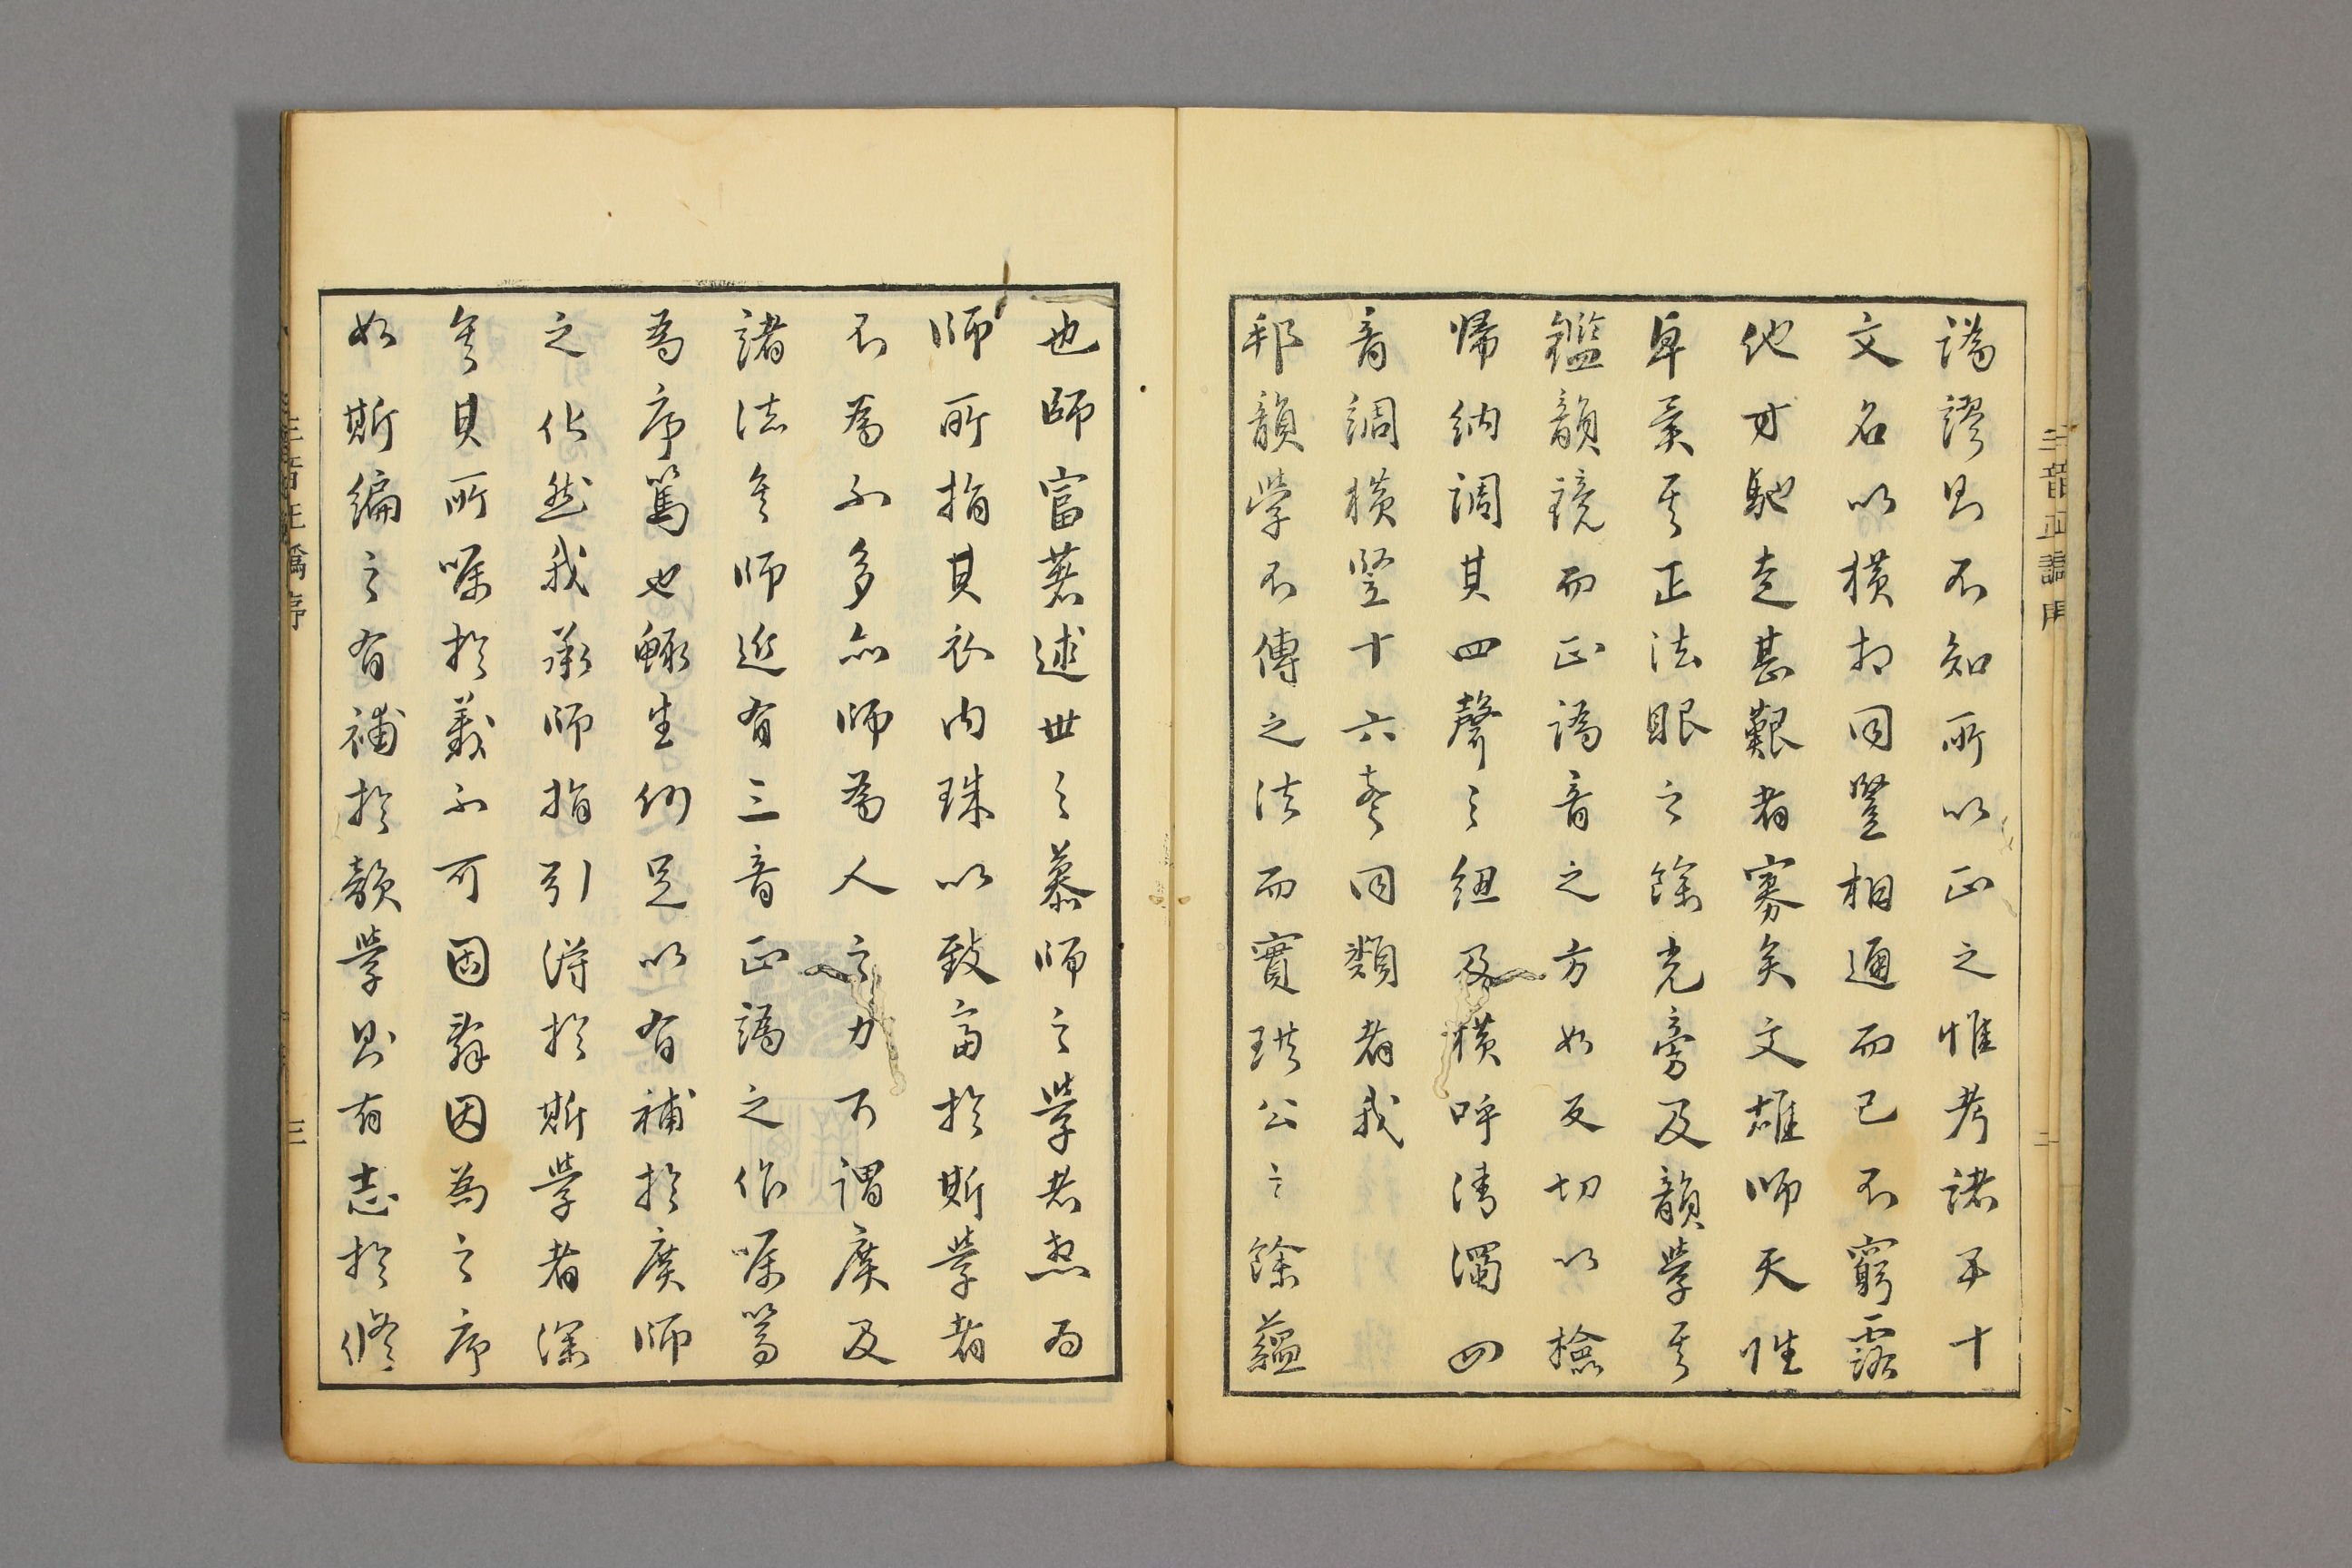 譌謬則不知所以正之惟考諸五十
文名以横相同豎相通而已不窮露
他才馳走甚艱者寡矣文雄師天性
卓異其正法眼之餘光旁及韻學其
鑑韻鏡而正譌音之方如反切以檢
帰納調其四聲之紐及横呼清濁四
音調横豎十六声同類者我
邦韻學不傳之法而實珙公之餘蘊
也師富著述世之慕師之學者懇為
師所指其衣内珠以致富於斯學者
不為不多然師為人之力可謂廣及
諸法矣師近有三音正譌之作嘱篤
為序篤也鯫生何足以有補於廣師
之化然我承師指引得於斯學者深
矣其所嘱於義不可固辞因為之序
如斯編之有補於韻學則有志於脩
三音正譌序
二
三音正譌序
三